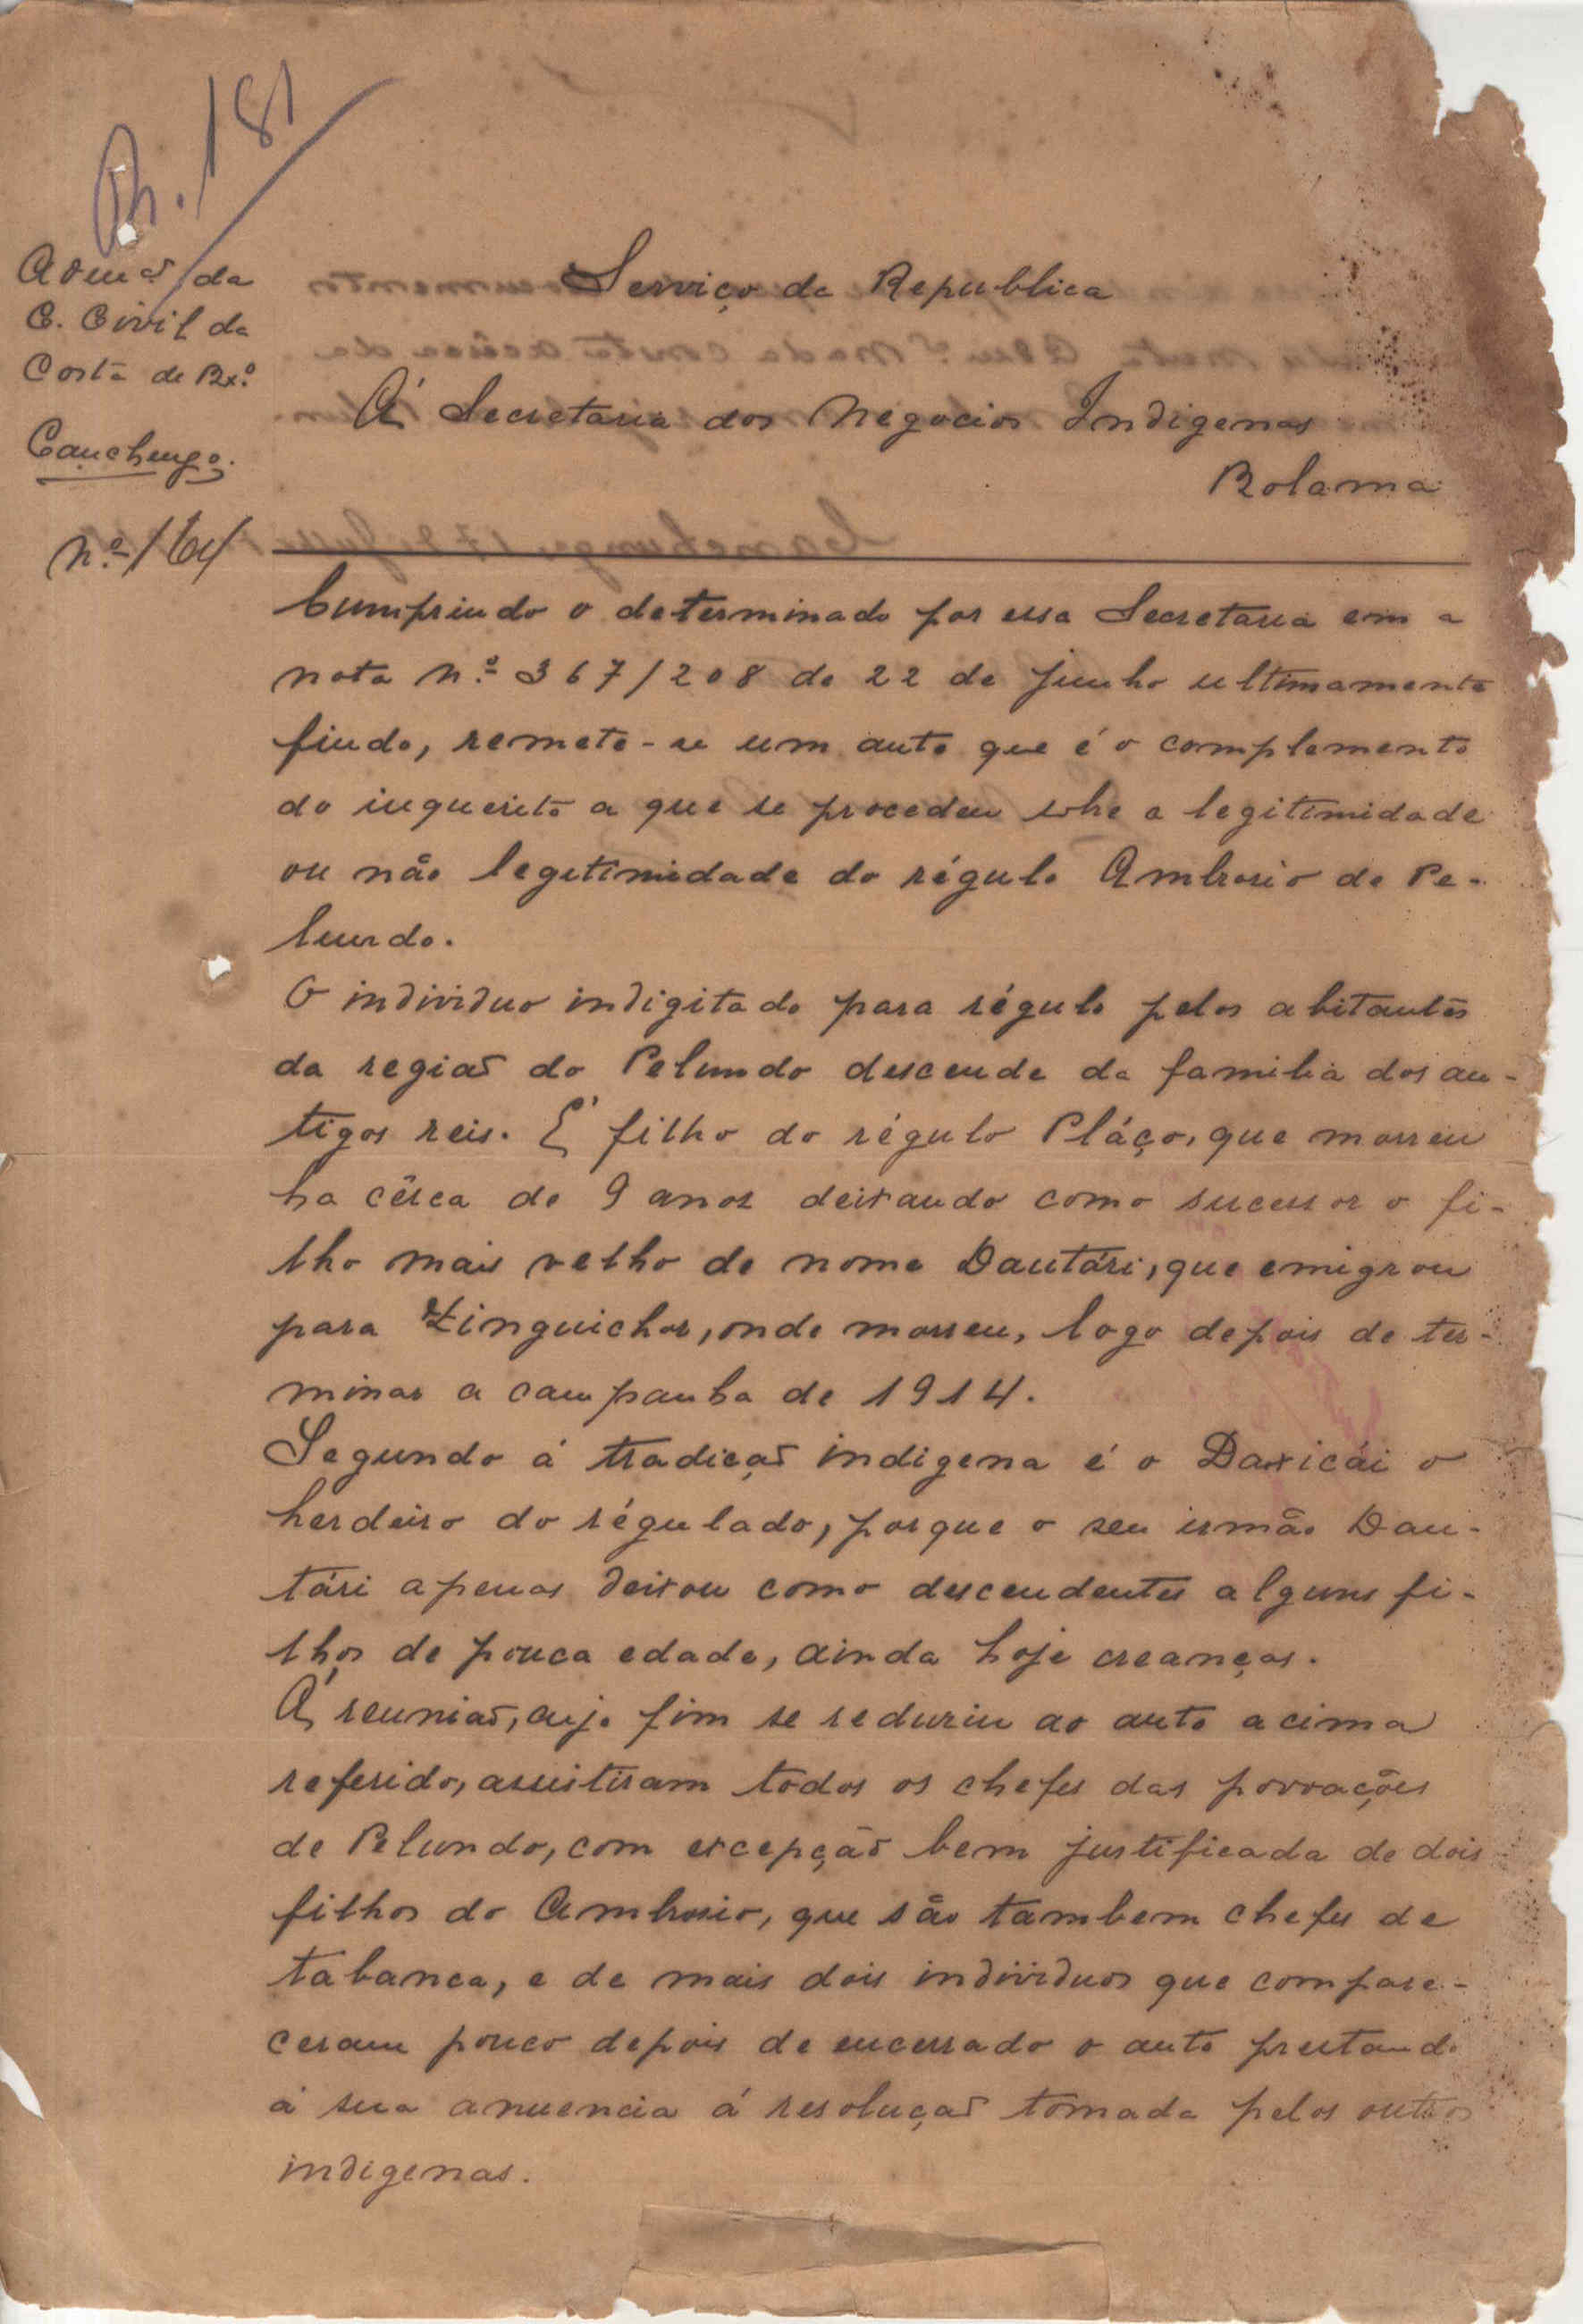 181
Adm.ão da
C. Civil da
Costa de Bx.º
Canchungo.
N.º 164
Serviço da Republica
Á Secretaria dos Negocios Indigenas
Bolama
Cumprindo o determinado por essa Secretaria em a
nota n.º 367/208 de 22 de junho ultimamente
findo, remete-se um auto que é o complemento
do inquerito a que se procedeu sobre a legitimidade
ou não legitimidade do régulo Ambrosio de Pe-
lundo.
O individuo indigitado para régulo pelos abitantes
da região do Pelundo descende da familia dos an-
tigos reis. É filho do régulo Pláço, que morreu
ha cêrca de 9 anos deixando como sucessor o fi-
lho mais velho de nome Dautári, que emigrou
para Zinguichor, onde morreu, logo depois de ter-
minar a campanha de 1914.
Segundo á tradição indigena é o Daxicái o
herdeiro do régulado, porque o seu irmão Dau-
tári apenas deixou como descendentes alguns fi-
lhos de pouca edade, ainda hoje creanças.
Á reunião, cujo fim se reduziu ao auto acima
referido, assistiram todos os chefes das povoações
de Pelundo, com excepção bem justificada de dois
filhos do Ambrosio, que são tambem chefes de
tabanca, e de mais dois individuos que compare-
ceram pouco depois de encerrado o auto prestando
á sua anuencia á resolução tomada pelos outros
indigenas.